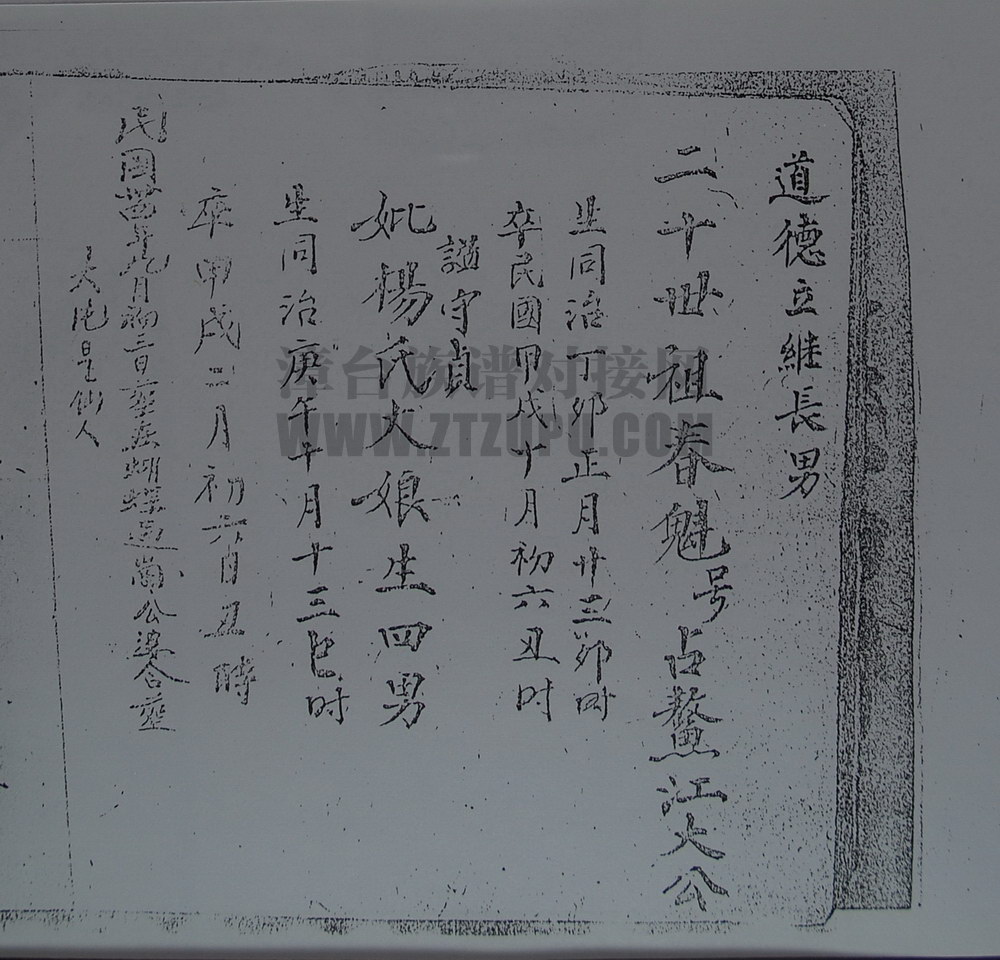 道德立继長男
二十世祖春魁号占鰲江大公
生同治丁卯正月廿三卯时
卒民國甲戌十月初六丑时
諡守貞
妣楊氏大娘生四男
生同治庚午十月十三巳时
卒甲戌三月初六日丑時
民国年九月初日葬在蝴蝶崙公婆合葬
大地是仙人
漳台族谱对接网
WWW.ZTZUPU.COM